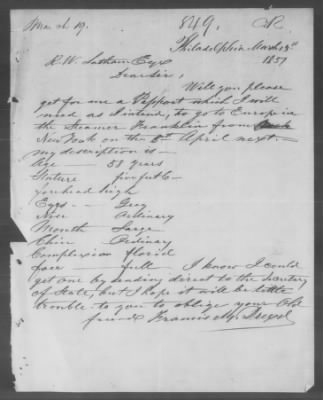 March 19.
849.
R
Philadelphia March 18th
1851
R. W. Latham Esqr
Dear Sir,
Will you please
get for me a Passport which I will
need as I intend, to go to Europe in
the Steamer Franklin from
New York on the 5th April next.
my description is —
Age 58 years
Stature five feet 6 —
forehead high
Eyes — Grey
Nose Ordinary
Mouth Large
Chin Ordinary
Complexion florid
face — full — I know I could
get one by sending direct to the Secretary
of State, but I hope it will be little
trouble to you to oblige your Old
friend Francis M. Drexel